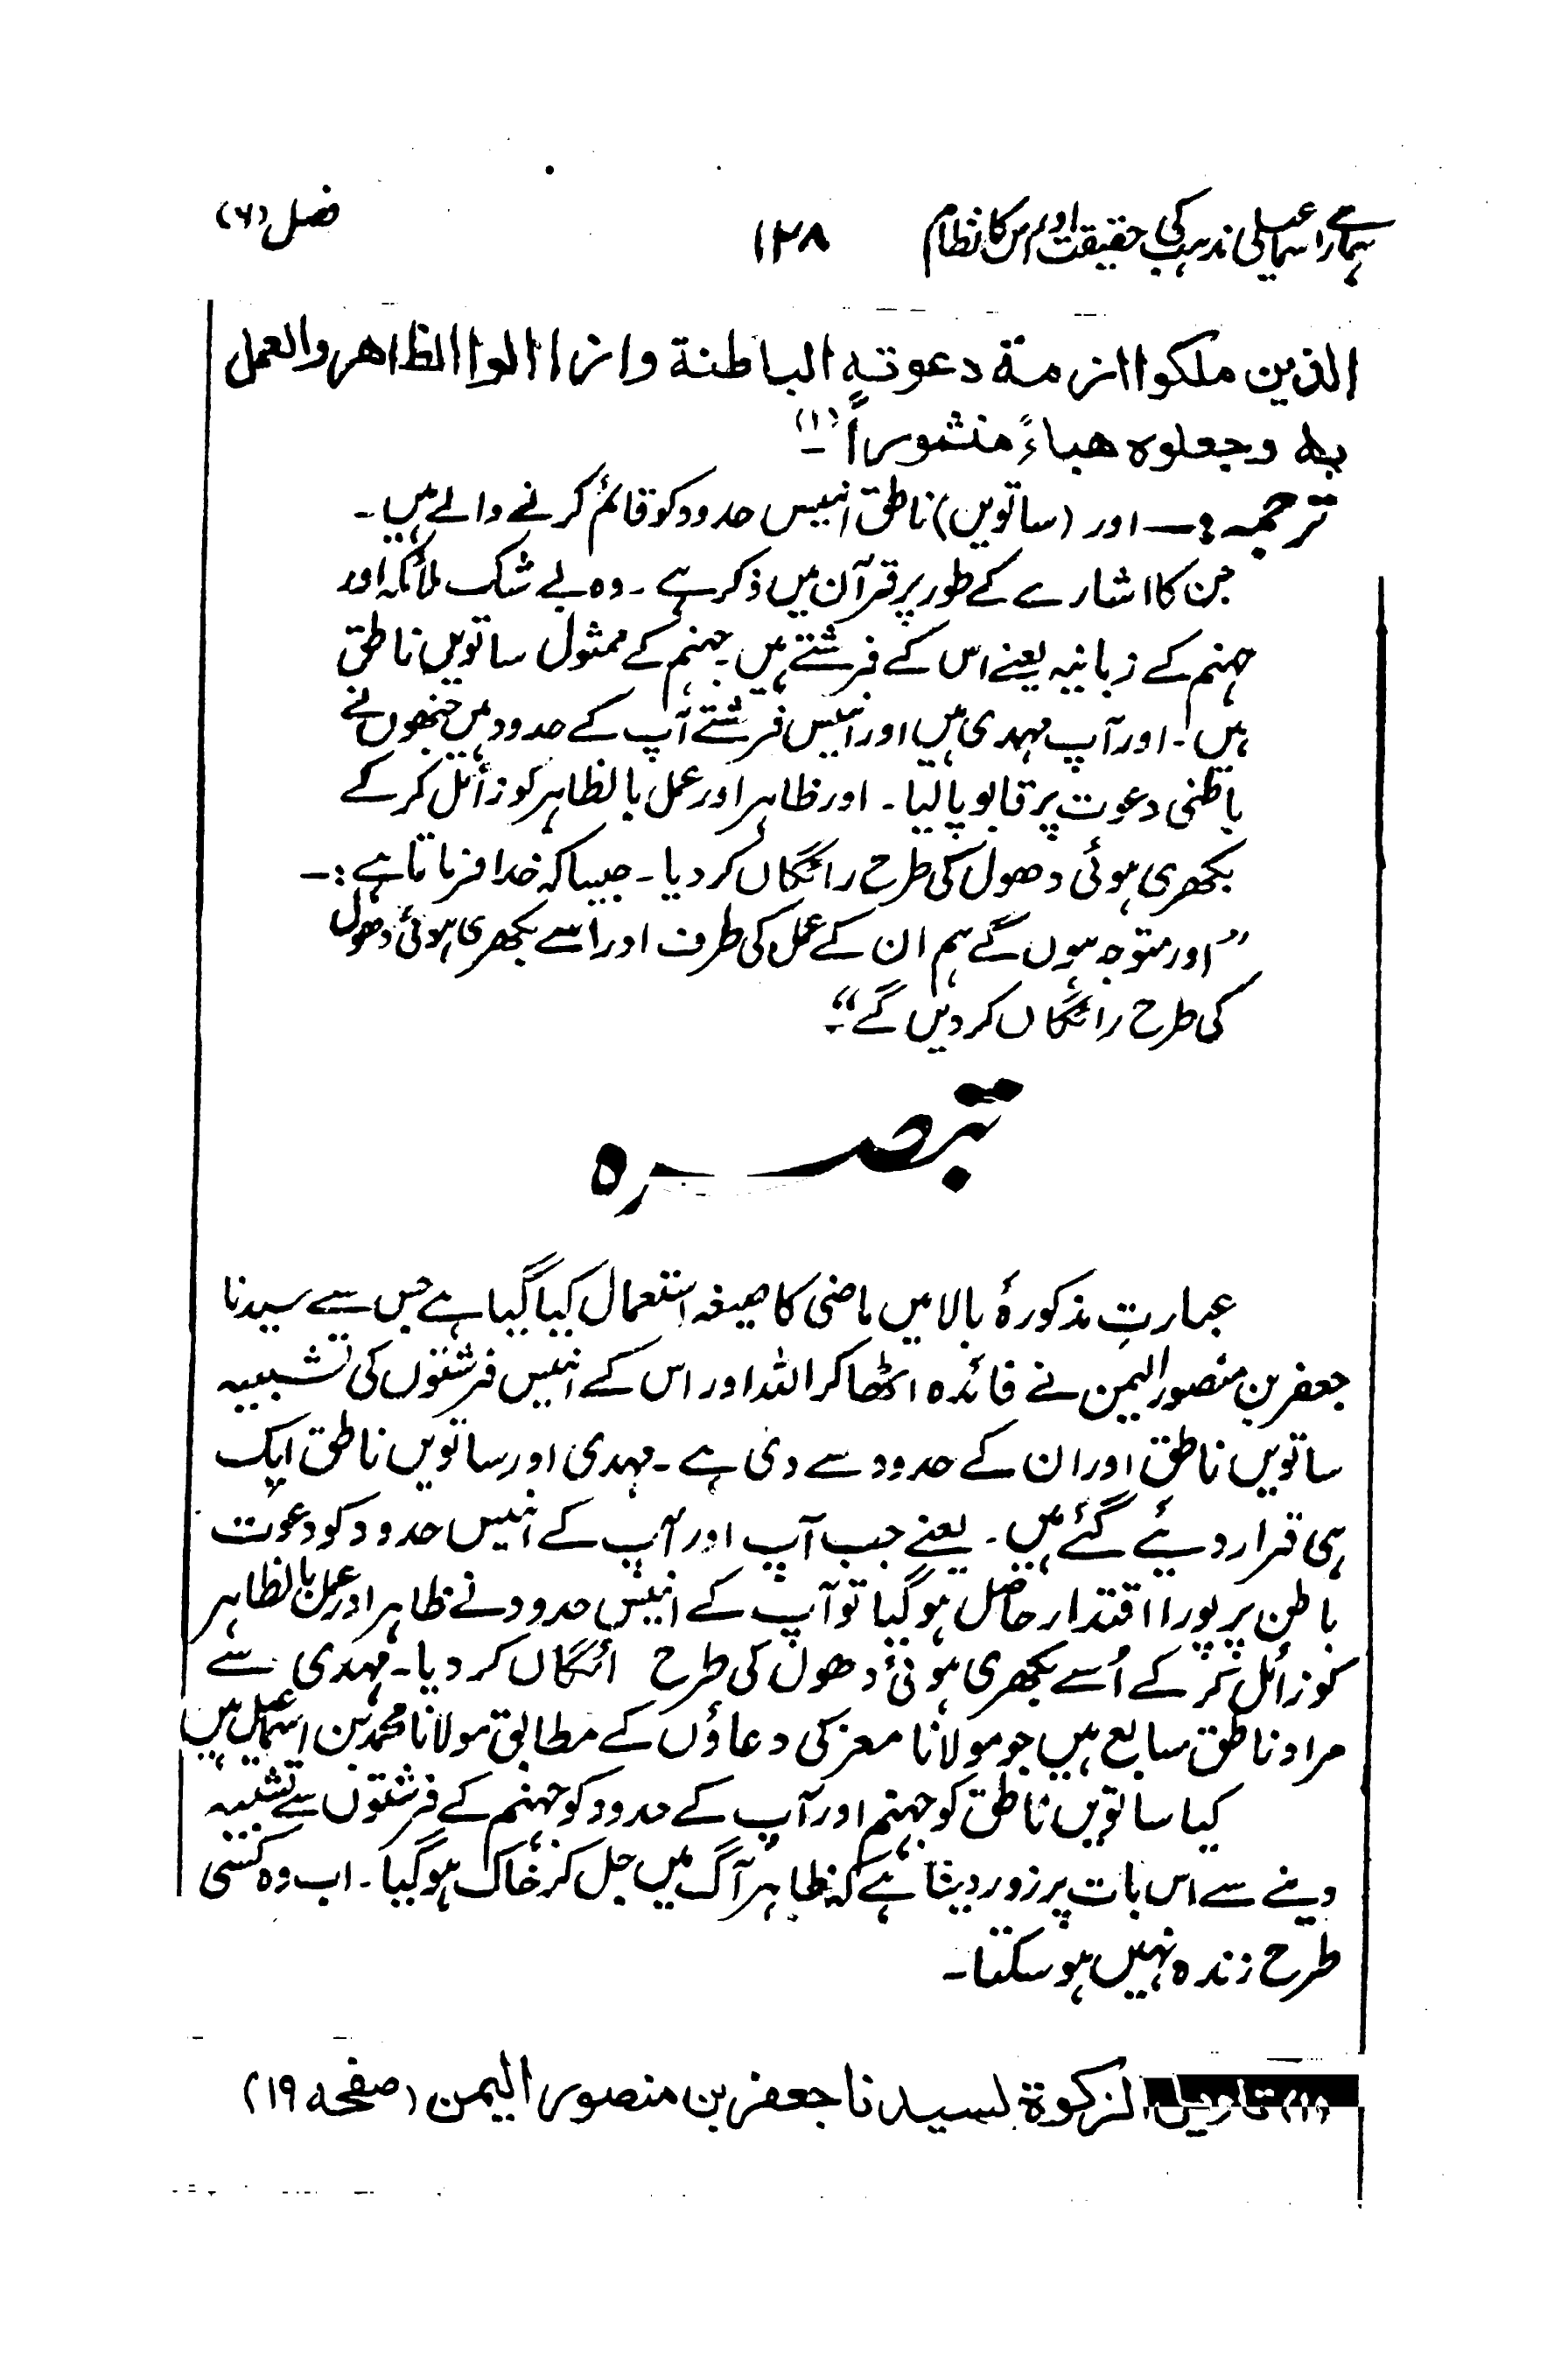 ہمارے اسماعیلی مذہب کی حقیقت اور اس کا نظام ۱۲۸ فصل (۶)
الذین ملکوا ازمة دعوته الباطنة وازاالوا الظاهر والعمل
به وجعلوه هباءً منثوراً (۱)۔
ترجمہ :— اور (ساتویں) ناطق انیس حدود کو قائم کرنے والے ہیں۔
جن کا اشارے کے طور پر قرآن میں ذکر ہے۔ وہ بے شک ملائکہ اور
جہنم کے زبانیہ یعنے اس کے فرشتے ہیں۔ جہنم کے ممثول ساتویں ناطق
ہیں۔ اور آپ مہدی ہیں اور انیس فرشتے آپ کے حدود ہیں جنھوں نے
باطنی دعوت پر قابو پا لیا۔ اور ظاہر اور عمل بالظاہر کو زائل کر کے
بکھری ہوئی دھول کی طرح رائگاں کر دیا۔ جیسا کہ خدا فرماتا ہے :—
”اور متوجہ ہوں گے ہم ان کے عمل کی طرف اور اسے بکھری ہوئی دھول
کی طرح رائگاں کر دیں گے“۔
تبصرہ
عبارتِ مذکورۂ بالا میں ماضی کا صیغہ استعمال کیا گیا ہے جس سے سیدنا
جعفر بن منصور الیمن نے فائدہ اٹھا کر اللہ اور اس کے انیس فرشتوں کی تشبیہ
ساتویں ناطق اور ان کے حدود سے دی ہے۔ مہدی اور ساتویں ناطق ایک
ہی قرار دیئے گئے ہیں۔ یعنے جب آپ اور آپ کے انیس حدود کو دعوت
باطن پر پورا اقتدار حاصل ہو گیا تو آپ کے انیس حدود نے ظاہر اور عمل بالظاہر
کو زائل کر کے اُسے بکھری ہوئی دھول کی طرح ائگاں کر دیا۔ مہدی سے
مراد ناطق سابع ہیں جو مولانا معز کی دعاؤں کے مطابق مولانا محمد بن اسمٰعیل ہیں
کیا ساتویں ناطق کو جہنم اور آپ کے حدود کو جہنم کے فرشتوں سے تشبیہ
دینے سے اس بات پر زور دینا ہے کہ ظاہر آگ میں جل کر خاک ہو گیا۔ اب وہ کسی
طرح زندہ نہیں ہو سکتا۔
(۱) تاویل الزکوة لسیدنا جعفر بن منصور الیمن (صفحه ۱۹)